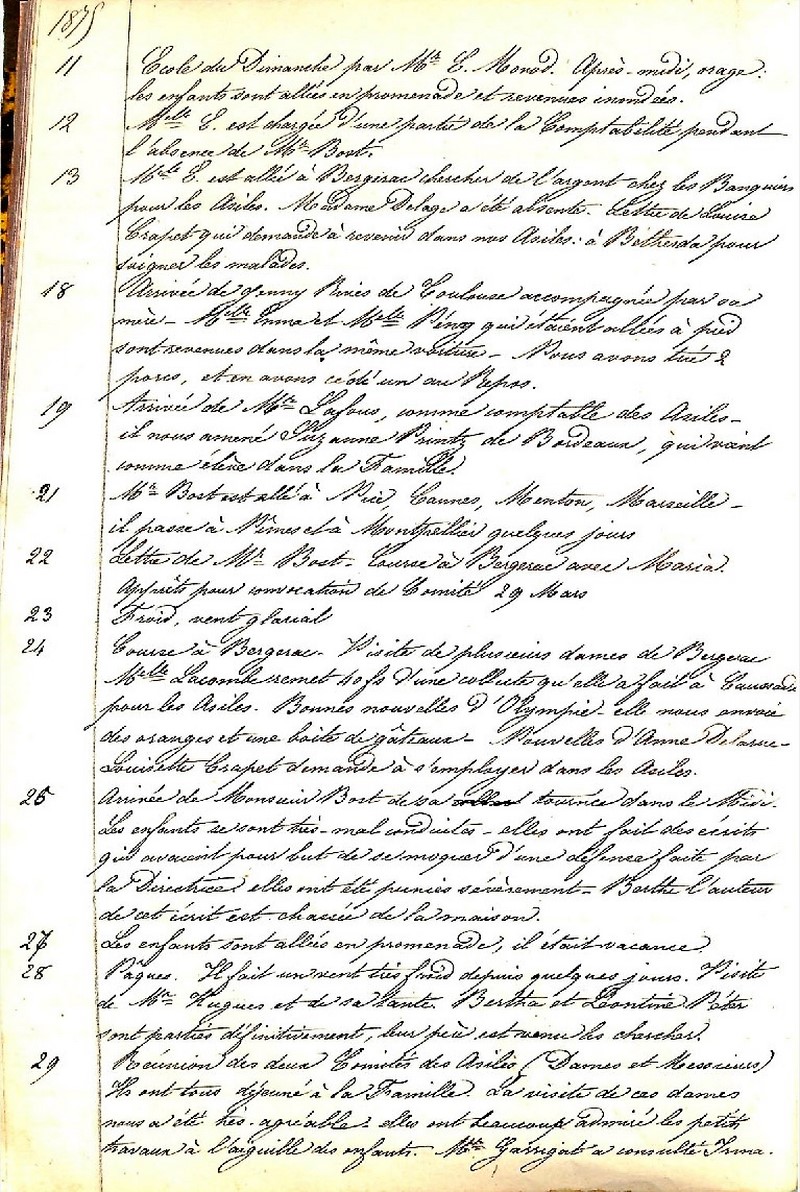 1875
11 Ecole du Dimanche par Mr E. Monod. Après-midi, orage:
les enfants sont allées en promenade et revenues inondées.
12 Melle E. est chargée d'une partie de la Comptabilité pendant
l'absence de Mr Bost.
13 Melle E. est allée à Bergerac chercher de l'argent chez les Banquiers
pour les Asiles. Madame Delage a été absente. Lettre de Louise
Crapet qui demande à revenir dans nos Asiles: à Béthesda pour
soigner les malades.
18 Arrivée de Jenny Rives de Toulouse accompagnée par sa
mère - Melle Irma et Melle Pény qui étaient allées à pied
sont revenues dans la même voiture - Nous avons tué 2
porcs, et en avons cédé un au Repos.
19 Arrivée de Mr Lafous, comme comptable des Asiles -
il nous amené Suzanne Printz de Bordeaux, qui vient
comme élève dans la Famille.
21 Mr Bost est allé à Nice, Cannes, Menton, Marseille -
il passe à Nîmes et à Montpellier quelques jours
22 Lettre de Mr Bost - Course à Bergerac avec Maria.
Apprêts pour convocation de Comité 29 Mars
23 Froid, vent glacial
24 Course à Bergerac - Visite de plusieurs dames de Bergerac
Melle Lacombe remet 40 fs d'une collecte qu'elle a fait à Caussade
pour les Asiles. Bonnes nouvelles d'Olympie - elle nous envoie
des oranges et une boîte de gâteaux - Nouvelles d'Anne Delarue -
Louisette Crapet demande à s'employer dans les Asiles.
25 Arrivée de Monsieur Bost de sa tournée dans le Midi.
Les enfants se sont très-mal conduites - elles ont fait des écrits
qui avaient pour but de se moquer d'une défense faite par
la Directrice elles ont été punies sévèrement - Berthe l'auteur
de cet écrit est chassée de la maison.
27 Les enfants sont allées en promenade, il était vacance.
28 Pâques. Il fait un vent très froid depuis quelques jours. Visite
de Mr Hugues et de sa tante. Bertha et Léontine Péter
sont parties définitivement, leur père est venu les chercher.
29 Réunion des deux Comités des Asiles (Dames et Messieurs)
Ils ont tous déjeuné à la Famille. La visite de ces dames
nous a été très-agréable - elles ont beaucoup admiré les petits
travaux à l'aiguille des enfants. Mr Garrigat a consulté Irma.